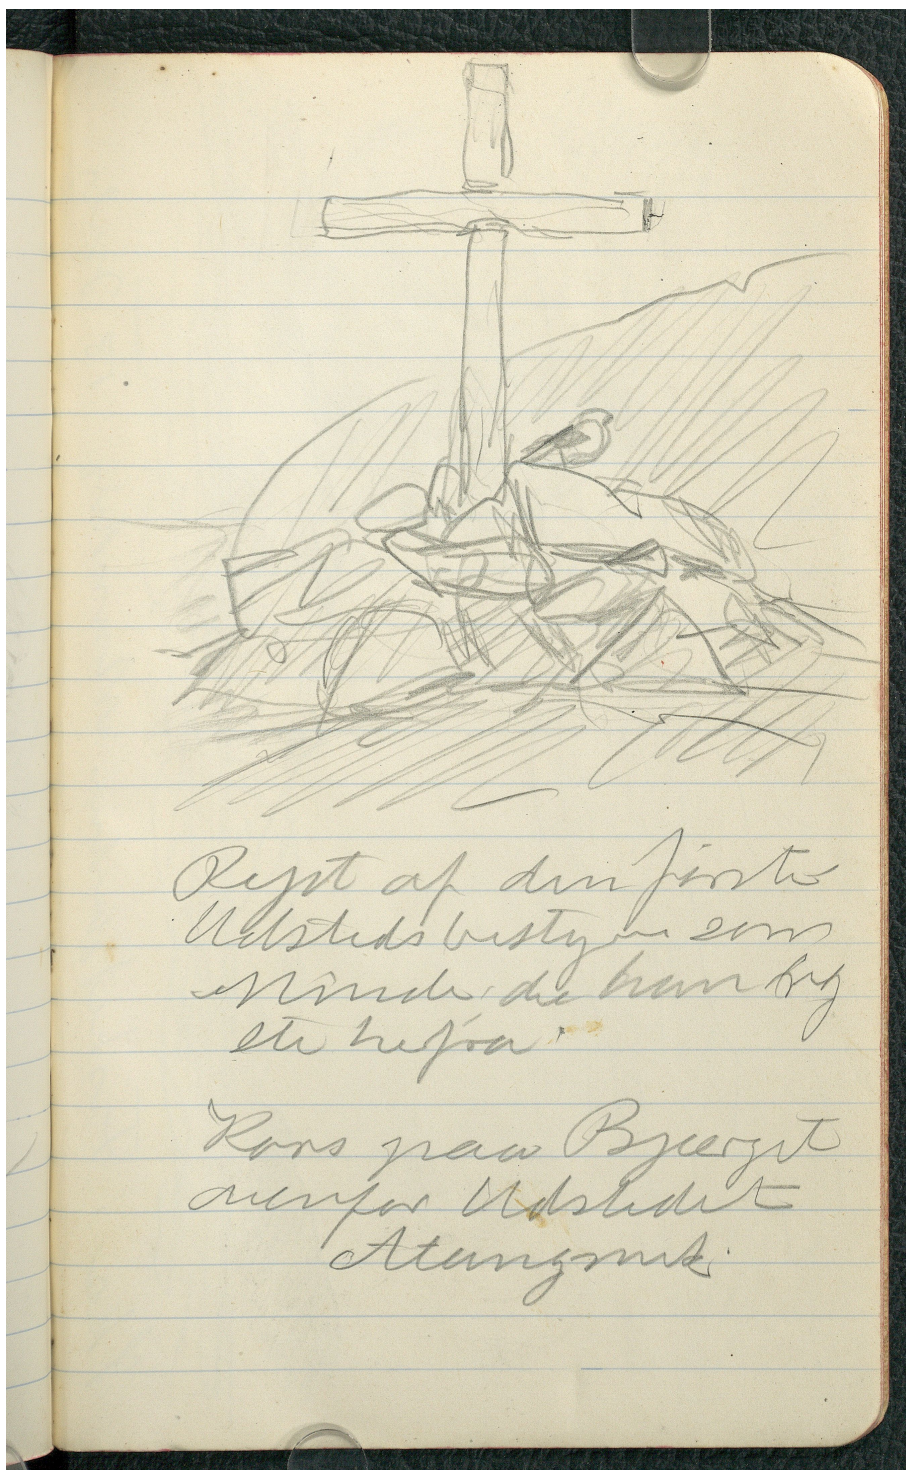 Rejst af den første
Udstedsbestyrer som
Minde, da han rej
ste herfra.
Kors paa Bjærget
ovenfor Udstedet
Atangmik.